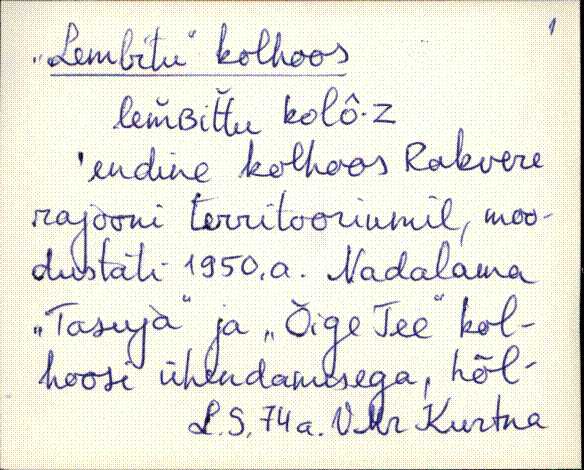 1
„Lembitu" kolhoos
lem̆ʙit̆t̆u kolô·z
'endine kolhoos Rakvere
rajooni territooriumil, moo-
dustati 1950.a. Nadalama
„Tasuja" ja „Õige Tee" kol-
hoosi ühendamisega, hõl-
L.S. 74 a. VMr Kurtna